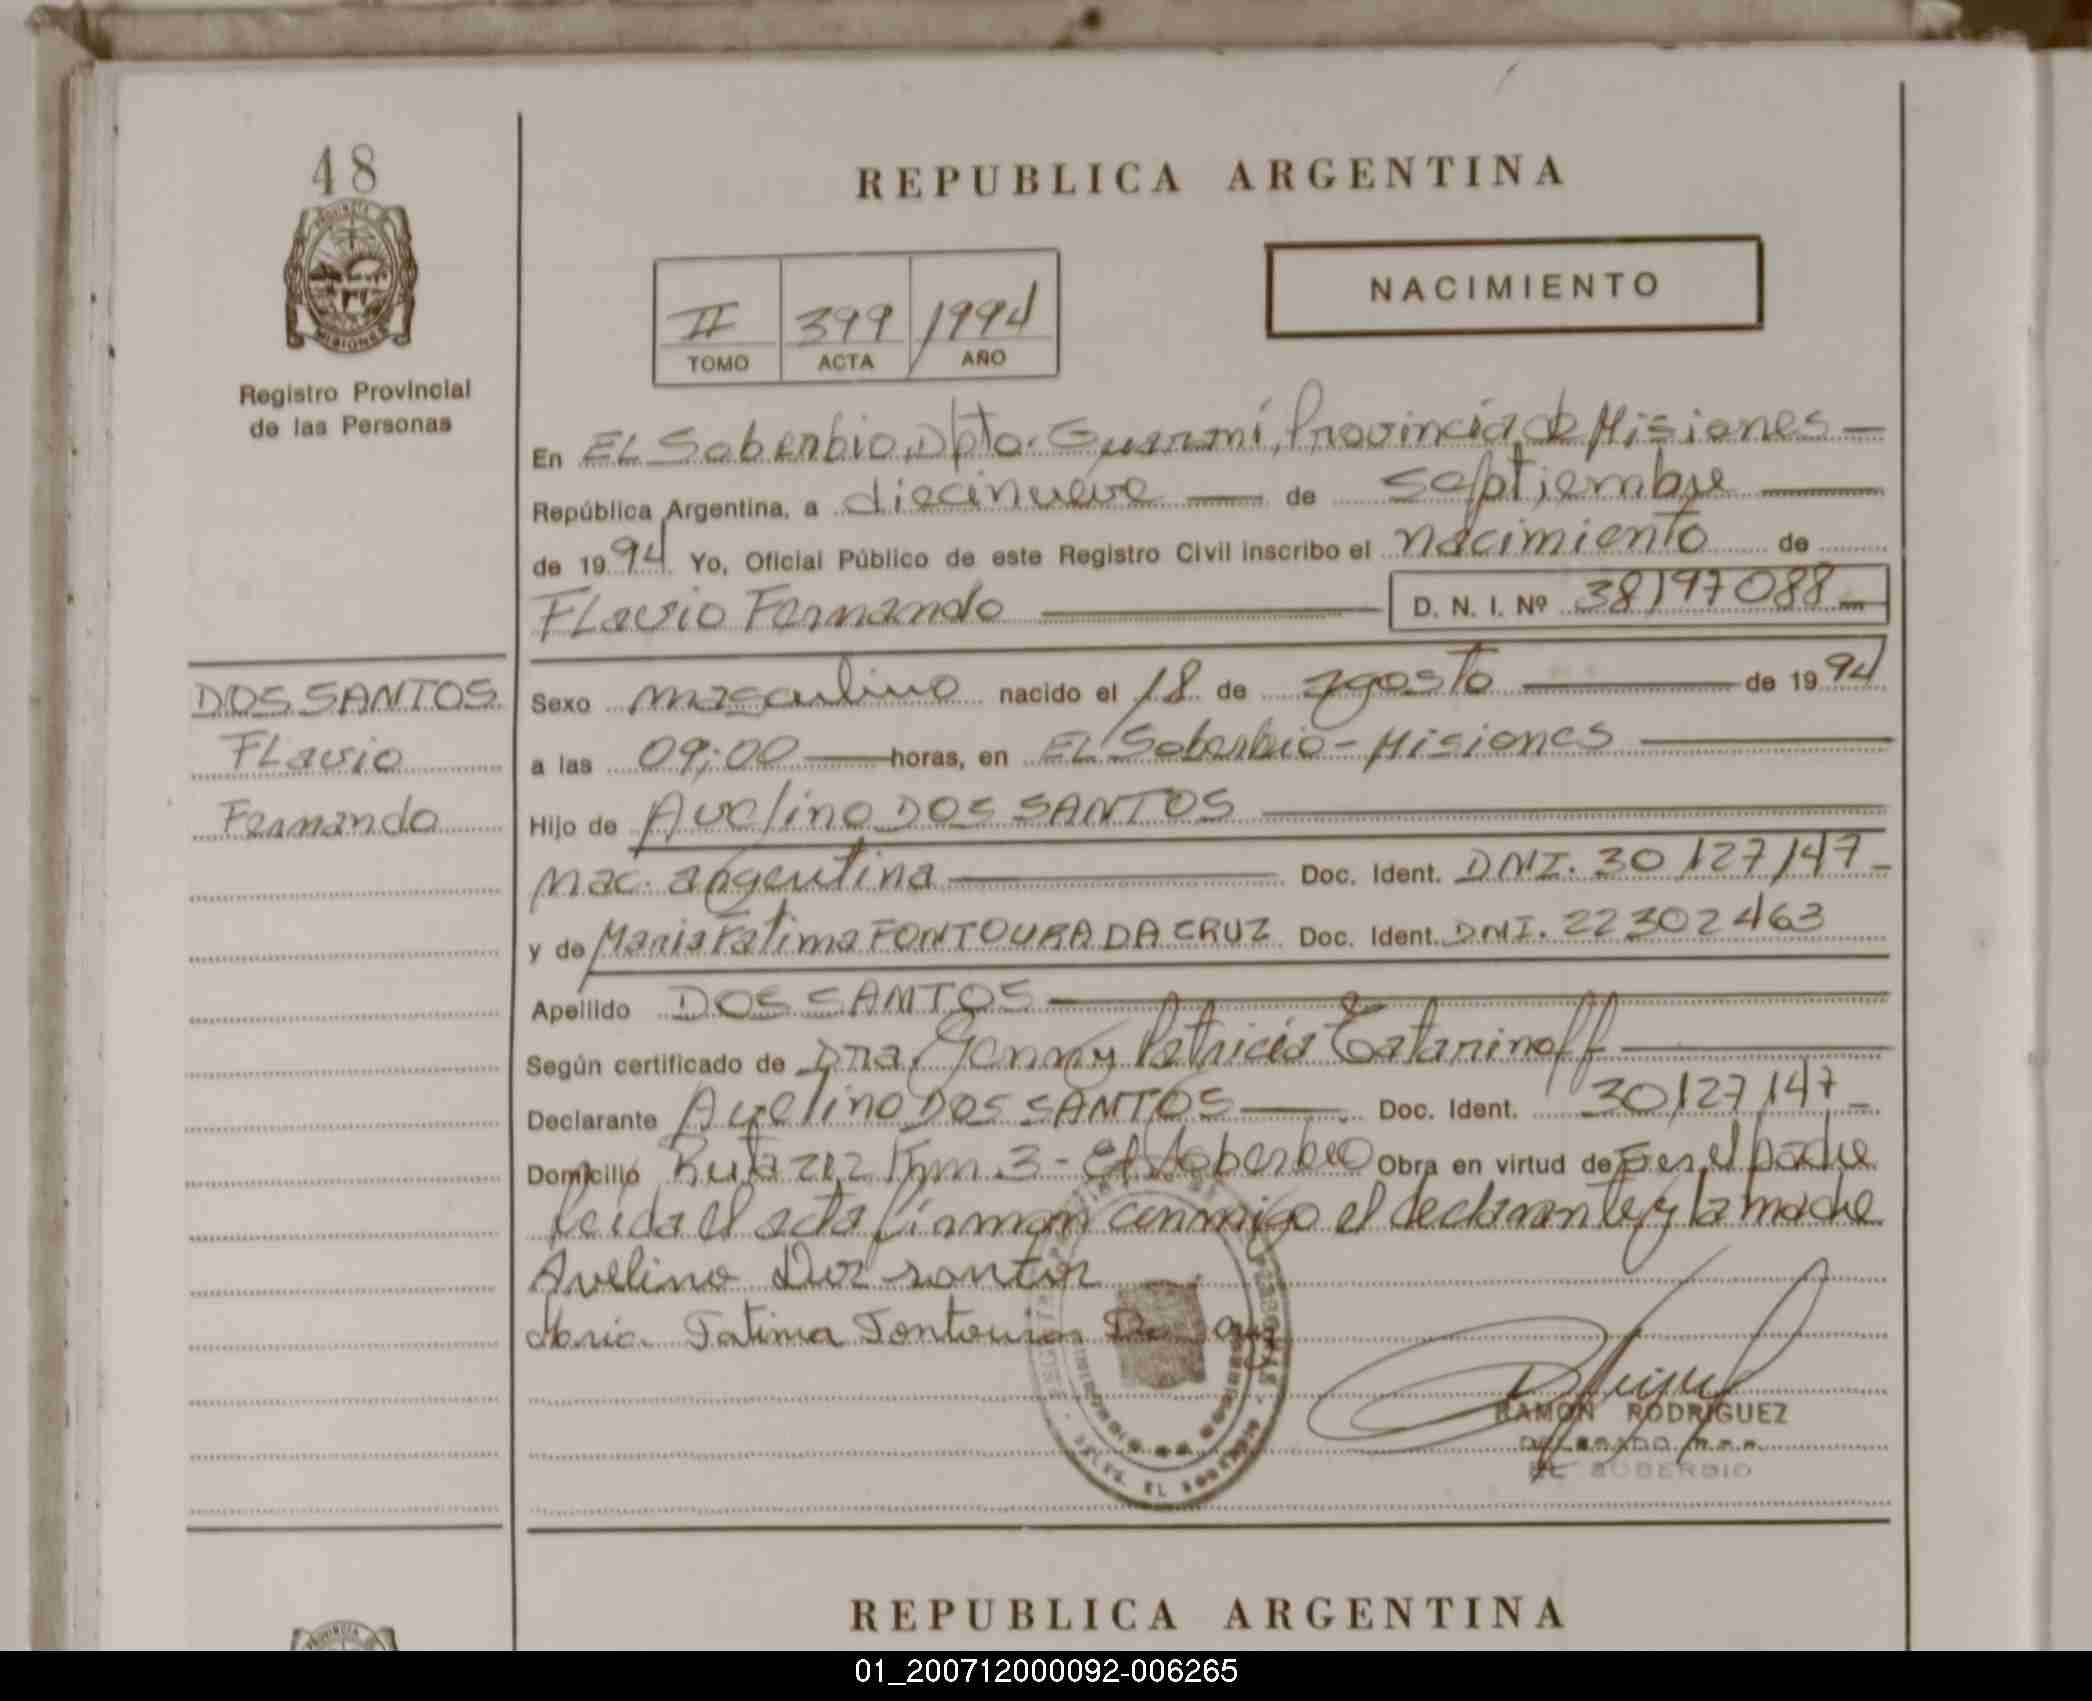 48
PROVINCIA DE
MISIONES
Registro Provincial
de las Personas
REPUBLICA ARGENTINA
NACIMIENTO
II 399 1994
TOMO ACTA AÑO
En EL Soberbio, Dpto. Guaraní, Provincia de Misiones —
República Argentina, a diecinueve — de septiembre —
de 1994 Yo, Oficial Público de este Registro Civil inscribo el nacimiento de
Flavio Fernando — D. N. I. Nº 38197088 —
DOS SANTOS
Flavio
Fernando
Sexo masculino nacido el 18 de agosto — de 1994
a las 09;00 — horas, en EL Soberbio - Misiones —
Hijo de Avelino DOS SANTOS —
Nac. argentina — Doc. Ident. DNI. 30127147 -
y de Maria Fatima FONTOURA DA CRUZ Doc. Ident. DNI. 22302463
Apellido DOS SANTOS —
Según certificado de Dra. Genny Patricia Tatarinoff —
Declarante Avelino DOS SANTOS — Doc. Ident. 30127147 -
Domicilio Ruta 212 Km 3 - El Soberbio Obra en virtud de Ser el padre
leida el acta firman conmigo el declarante y la madre
Avelino Dos santos
Maria Fatima Fontoura Da cruz
RAMON RODRIGUEZ
DELEGADO R.P.P.
EL SOBERBIO
REPUBLICA ARGENTINA
01_200712000092-006265